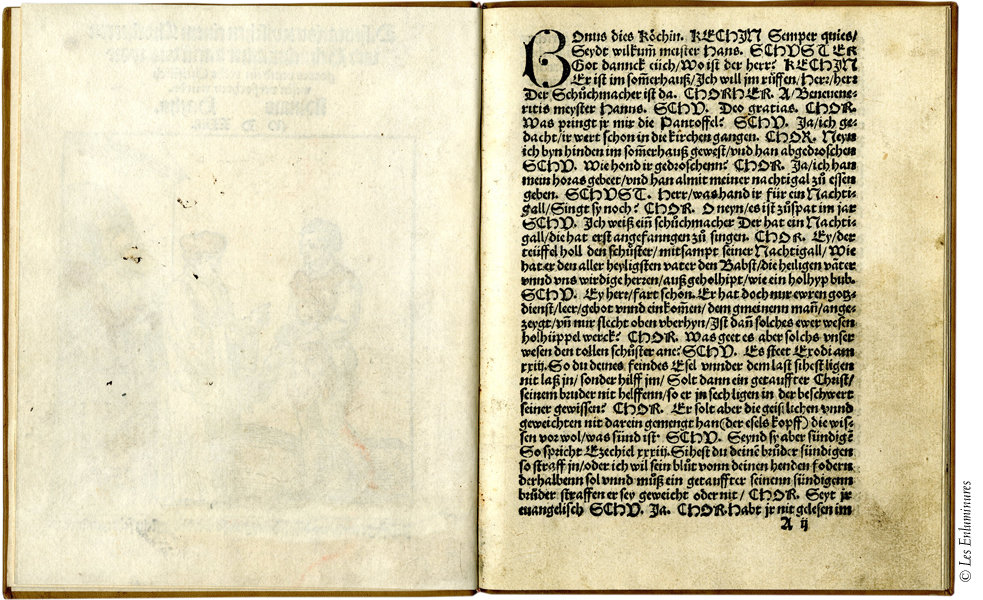 BOnus dies Köchin. KECHIN Semper quies/
Seydt wilkum̃ meister Hans. SCHVSTER
Got danck eüch/Wo ist der herr? KECHIN
Er ist im som̃erhauß/Ich will jm rüffen/Herr/herr
Der Schůchmacher ist da. CHORHER. A/Beneuene-
ritis meyster Hanns. SCHV. Deo gratias. CHOR.
Was pringt jr mir die Pantoffel? SCHV. Ja/ich ge-
dacht/ir wert schon in die kirchen gangen. CHOR. Neyn
ich byn hinden im som̃erhauß gewest/vnd han abgedroschen
SCHV. Wie hond ir gedroschenn? CHOR. Ja/ich han
mein horas gebeet/vnd han almit meiner nachtigal zů essen
geben. SCHVST. Herr/was hand ir für ein Nachti-
gall/Singt sy noch? CHOR. O neyn/es ist zůspat im jar
SCHV. Ich weiß ein schůchmacher Der hat ein Nachti-
gall/die hat erst angefanngen zů singen. CHOR. Ey/der
teüffel holl den schůster/mitsampt seiner Nachtigall/Wie
hat er den aller heyligsten vater den Babst/die heiligen våter
vnnd vns wirdige herzen/außgeholhipt/wie ein holhyp bub.
SCHV. Ey herr/fart schon. Er hat doch nur ewren gotz-
dienst/leer/gebot vnnd einkom̃en/dem gmeinenn man̄/ange-
zeygt/vn̄ nur slecht oben vberhyn/Ist dan̄ solches ewer wesen
holhüppel werck? CHOR. Was geet es aber solchs vnser
wesen den tollen schůster ane? SCHV. Es steet Exodi am
xxiij. So du deines feindes Esel vnnder dem last sihest ligen
nit laß jn/sonder hilff jm/Solt dann ein getauffter Christ/
seinem bruder nit helffenn/so er jn sech ligen in der beschwert
seiner gewissen? CHOR. Er solt aber die geistlichen vnnd
geweichten nit darein gemengt han (der esels kopff) die wis-
sen vor wol/was sünd ist. SCHV. Seynd sy aber sündigē
So spricht Ezechiel xxxiij. Sihest du deinē brůder sündigen
so straff jn/oder ich wil sein blůt vonn deinen henden fodern
derhalbenn sol vnnd můß ein getauffter seinenn sündigenn
brůder straffen er sey geweicht oder nit/CHOR. Seyt jr
euangelisch SCHV. Ja. CHOR. Habt jr nit gelesen im
A ij
© Les Enluminures